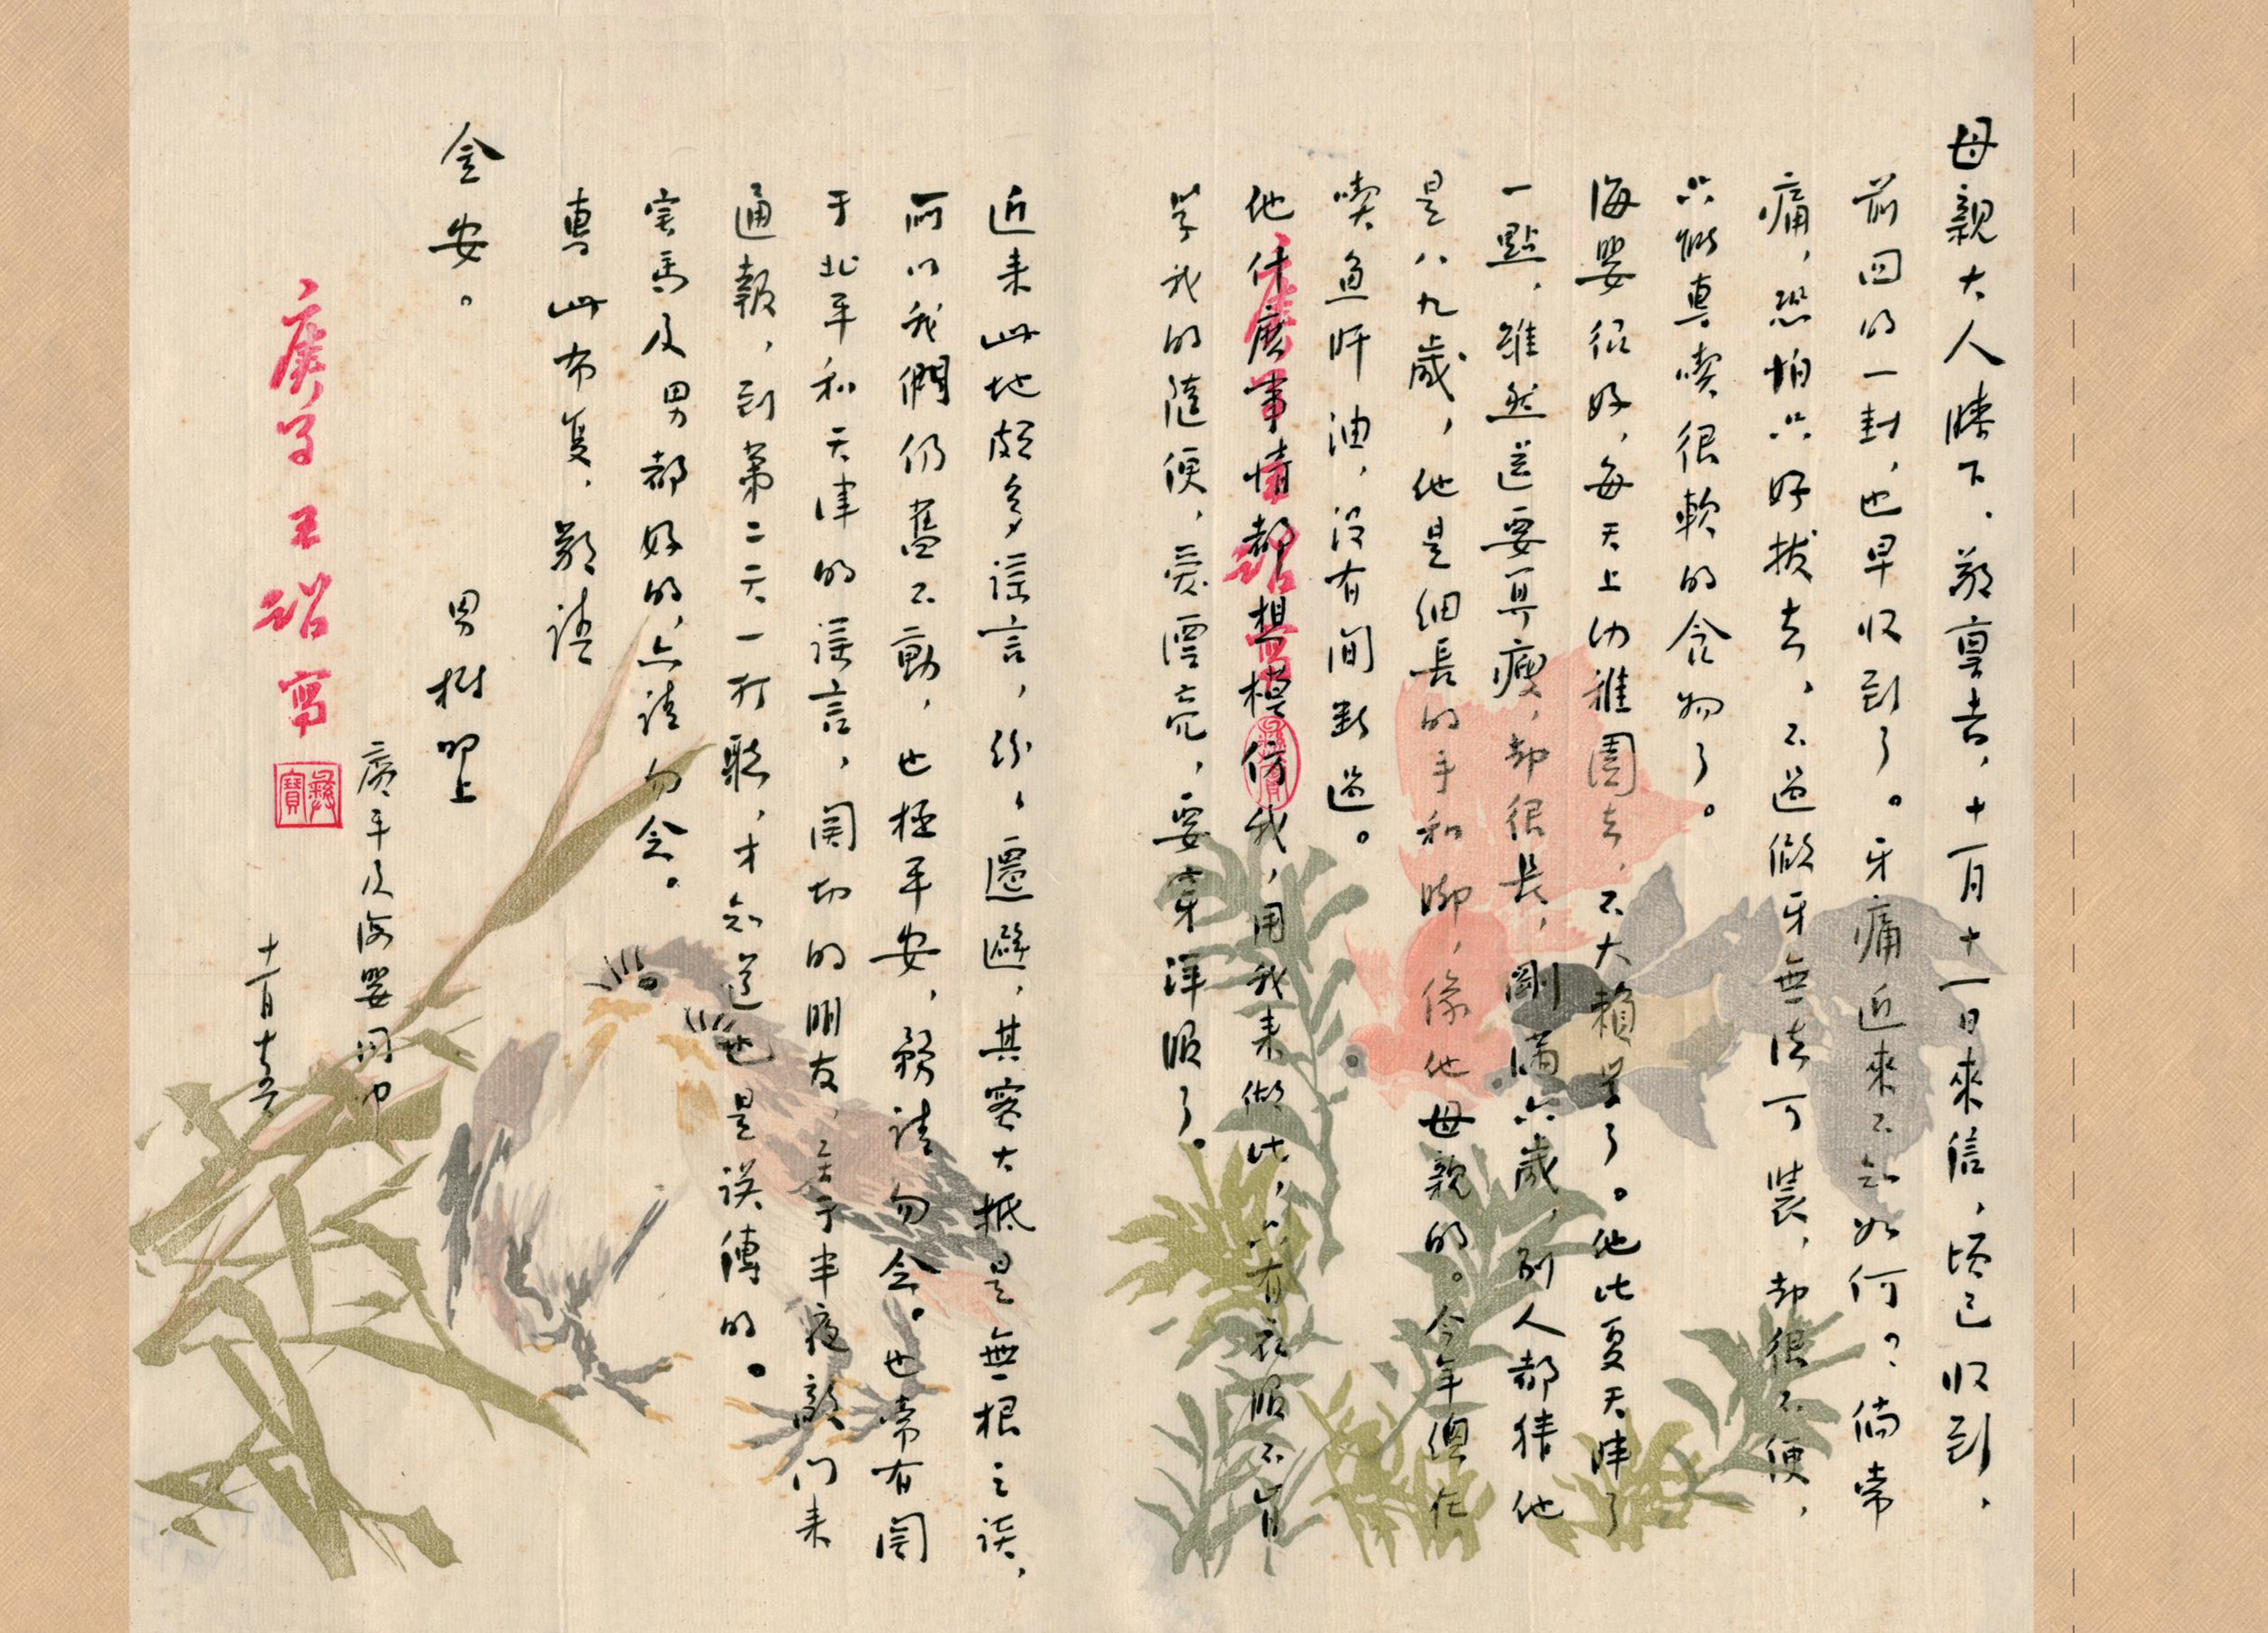 母親大人膝下，敬稟者，十一月十一日來信，頃已收到，
前回的一封，也早收到了。牙痛近來不知如何？倘常
痛，恐怕只好拔去，不過做牙無法可裝，却很不便，
只能專喫很軟的食物了。
海嬰很好，每天上幼稚園去，不大賴學了。他比夏天胖了
一點，雖然還要算瘦，却很長，剛滿六歲，別人都猜他
是八九歲，他是細長的手和脚，像他母親的。今年總在
喫魚肝油，沒有間斷過。
他什麼事情都想模仿我，用我來做比，只有衣服不肯
學我的隨便，愛漂亮，要穿洋服了。
近來此地頗多謠言，紛紛遷避，其實大抵是無根之談，
所以我們仍舊不動，也極平安，務請勿念。也常有關
于北平和天津的謠言，關切的朋友，至于半夜敲門來
通報，到第二天一打聽，才知道也是誤傳的。
害馬及男都好的，亦請勿念。
專此布復，敬請
金安。
男樹叩上
廣平及海嬰同叩
十一月十五日
庚子 王 詔 寫
彝寶